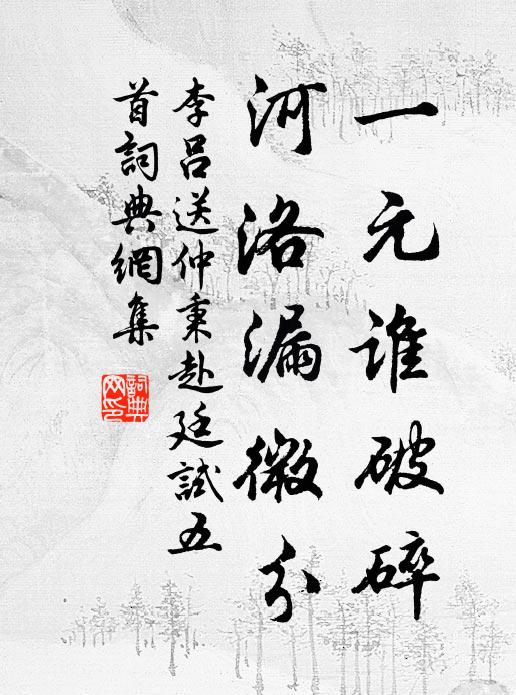 一元誰破碎
河洛漏微分
李呂送仲秉赴廷試五
首詞典網集
詞典網印